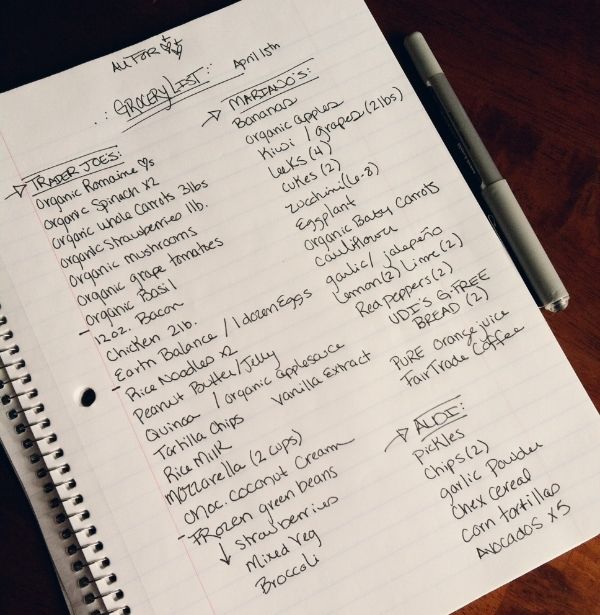 ALL FOR
GROCERY LIST:
April 15th
TRADER JOES:
Organic Romaine ♡s
Organic Spinach x2
Organic whole Carrots 3lbs
Organic Strawberries 1lb.
Organic mushrooms
Organic grape tomatoes
Organic Basil
12oz. Bacon
Chicken 2lb.
Earth Balance / 1 dozen Eggs
Rice Noodles x2
Peanut Butter/Jelly
Quinoa / organic applesauce
Tortilla Chips Vanilla Extract
Rice Milk
Mozzarella (2 cups)
Choc. Coconut Cream
FROZEN green beans
strawberries
Mixed Veg
Broccoli
MARIANO'S:
Bananas
organic apples
Kiwi / grapes (2lbs)
Leeks (4)
Cukes (2)
Zucchini (6-8)
Eggplant
Organic Baby Carrots
Cauliflower
garlic/ jalapeño
Lemon (2) Lime (2)
Red Peppers (2)
UDI'S G.FREE
BREAD (2)
PURE orange juice
Fair Trade Coffee
ALDI:
Pickles
Chips (2)
garlic Powder
Chex Cereal
corn tortillas
Avocados x5